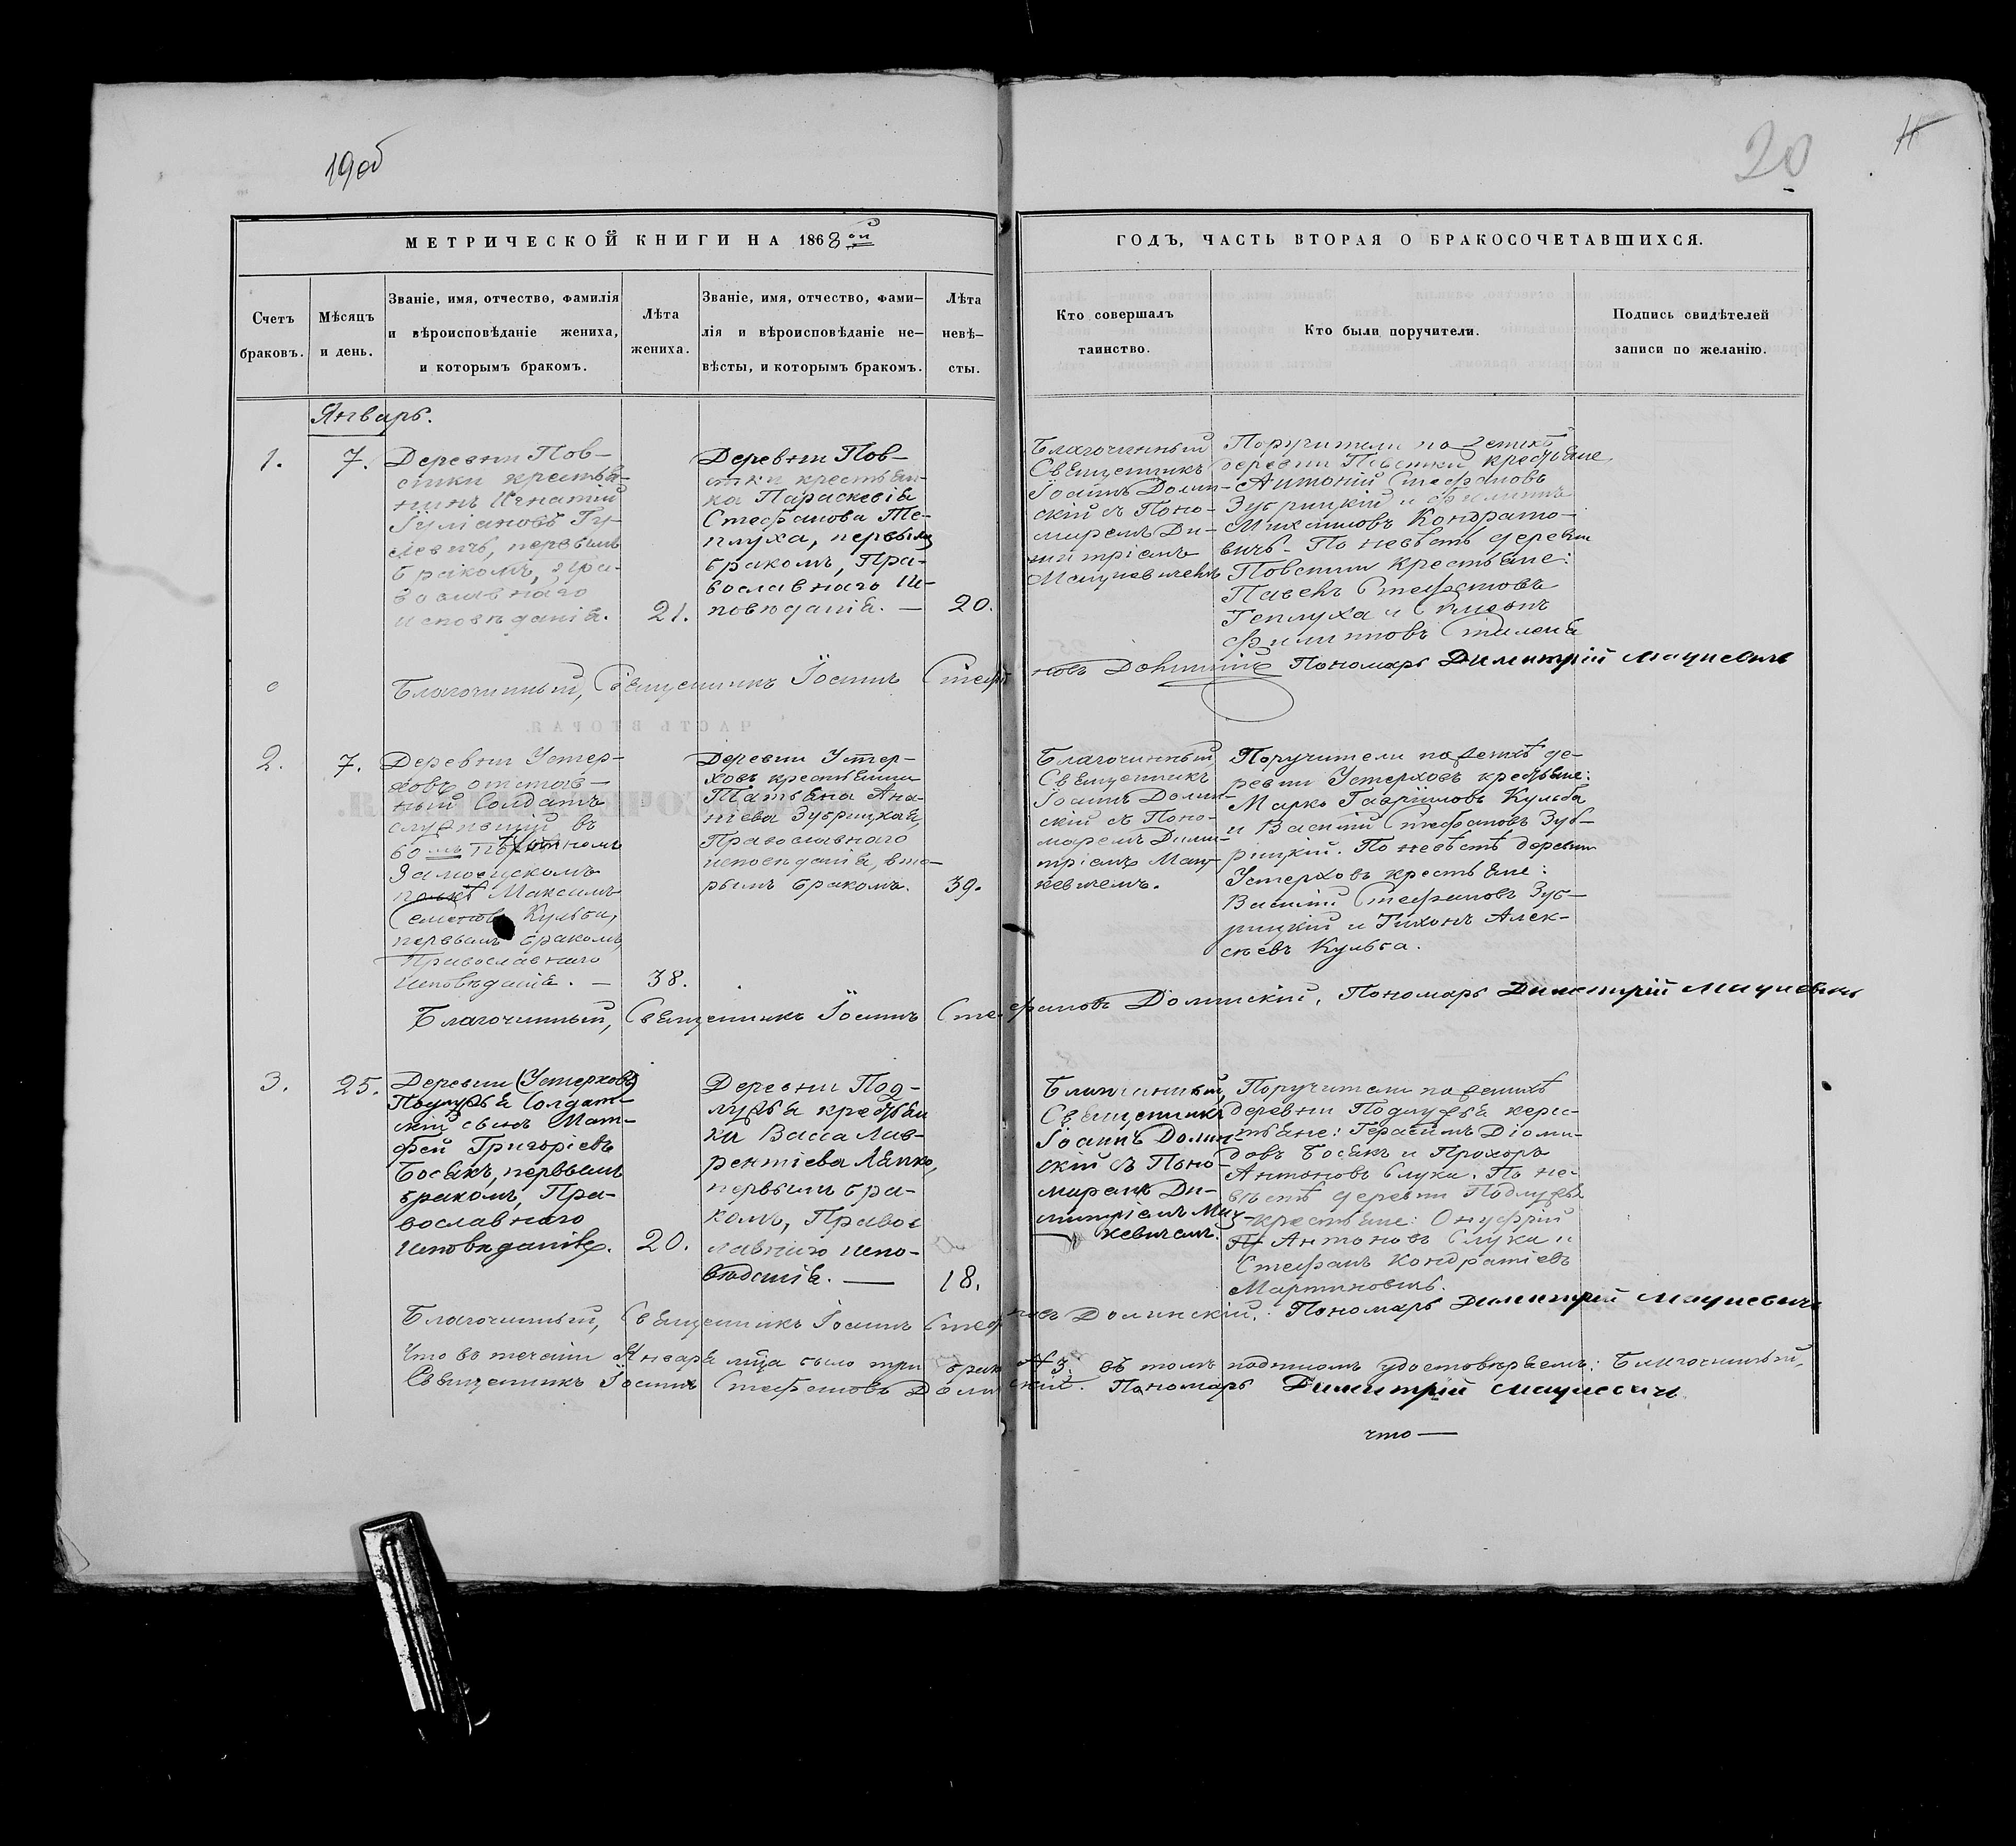 19об
20
МЕТРИЧЕСКОЙ КНИГИ НА 1868 ой
ГОДЪ, ЧАСТЬ ВТОРАЯ О БРАКОСОЧЕТАВШИХСЯ.
Счетъ
браковъ.
Мѣсяцъ
и день.
Званіе, имя, отчество, фамилія
и вѣроисповѣданіе жениха,
и которымъ бракомъ.
Лѣта
жениха.
Званіе, имя, отчество, фами–
лія и вѣроисповѣданіе не–
вѣсты, и которымъ бракомъ.
Лѣта
невѣ–
сты.
Кто совершалъ
таинство.
Кто были поручители.
Подпись свидѣтелей
записи по желанію.
Январь.
1.
7.
Деревни Пов–
стки крестья–
нинъ Игнатій
Іуліановъ Гу–
левичъ, первымъ
бракомъ, Пра–
вославнаго
исповѣданія.
21.
Деревни Пов–
стки крестьян–
ка Параскевія
Стефанова Те–
плуха, первымъ
бракомъ, Пра–
вославнаго Ис–
повѣданія. —
20.
Благочинный
Священникъ
Іоаннъ Долин–
скій съ Поно–
маремъ Ди–
митріемъ
Мацкевичемъ
Поручители по женихѣ
деревни Повстки крестьяне
Антоній Стефановъ
Зубрицкій и
Михаиловъ Кондрато–
вичъ. По невѣстѣ деревни
Повстки крестьяне:
Павелъ Стефановъ
Теплуха и Симеонъ
Филипповъ
Благочинный, Священникъ Іоаннъ Стефановъ Долинскій Пономарь Димитрій Мацкевичъ
2.
7.
Деревни Устер–
ховъ отстав–
ный Солдатъ
служившій въ
60 мъ Пѣхотномъ
Замосцскомъ
полкѣ Максимъ
Семеновъ Кульба,
первымъ бракомъ,
Православнаго
исповѣданія. —
38.
Деревни Устер–
ховъ крестьянка
Татьяна Ана–
ніева Зубрицкая,
Православнаго
исповѣданія, вто–
рымъ бракомъ.
39.
Благочинный,
Священникъ
Іоаннъ Долин–
скій съ Поно–
маремъ Дими–
тріемъ Мац–
кевичемъ.
Поручители по женихѣ де–
ревни Устерховъ крестьяне:
Марко Гавріиловъ Кульба
и Василій Стефановъ Зуб–
рицкій. По невѣстѣ деревни
Устерховъ крестьяне:
Василій Стефановъ Зуб–
рицкій и Тихонъ Алек–
сѣевъ Кульба.
Благочинный, Священникъ Іоаннъ Стефановъ Долинскій. Пономарь Димитрій Мацкевичъ
3.
25.
Деревни (Устерховъ)
Подлужья Солдат–
скій сынъ Мат–
фей Григоріевъ
Босякъ, первымъ
бракомъ, Пра–
вославнаго
исповѣданія.
20.
Деревни Под–
лужья крестьян
ка Васса Лав–
рентіева Ляпко,
первымъ бра–
комъ, Правос
лавнаго испо–
вѣданія. —
18.
Благочинный,
Священникъ
Іоаннъ Долин–
скій съ Поно–
маремъ Ди–
митріемъ Мац–
кевичемъ.
Поручители по женихѣ
деревни Подлужья крес–
тьяне: Герасимъ Діоми–
довъ Босякъ и Прохоръ
Антоновъ Слука. По не–
вѣстѣ деревни Подлужья
крестьяне: Онуфрій
Антоновъ Слука и
Стефанъ Кондратіевъ
Мартиновичъ.
Благочинный, Священникъ Іоаннъ Стефановъ Долинскій. Пономарь Димитрій Мацкевичъ
Что въ теченіи Января м͠ца было три брака № 3. въ томъ подписомъ удостовѣряемъ: Благочинный,
Священникъ Іоаннъ Стефановъ Долинскій. Пономарь Димитрій Мацкевичъ
что —